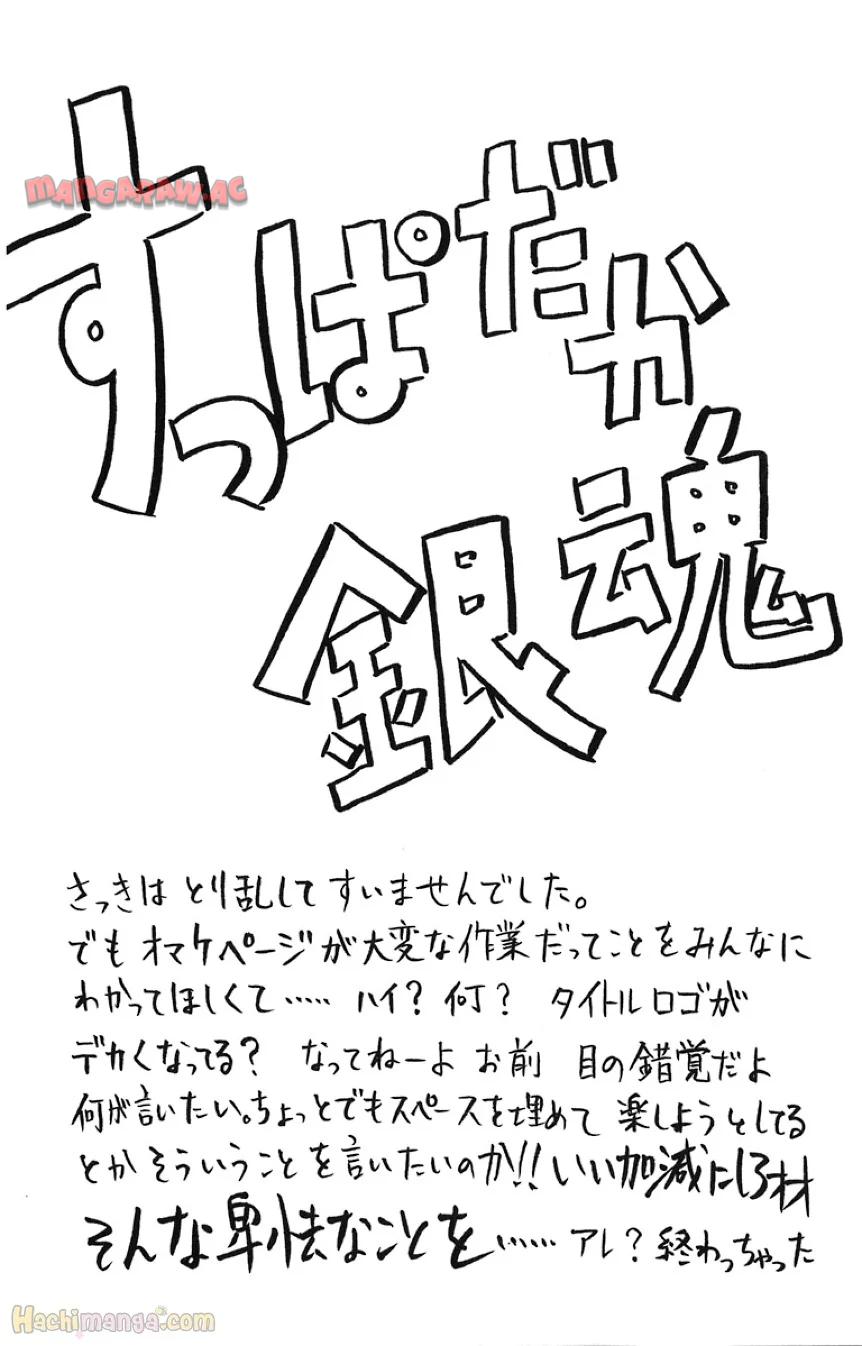 MANGARAW.AC
すっぱだか
銀魂
さっきは とり乱して すいませんでした。
でも オマケページが大変な作業だってことをみんなに
わかってほしくて…… ハイ? 何? タイトルロゴが
デカくなってる? なってねーよ お前 目の錯覚だよ
何が言いたい。ちょっとでもスペースを埋めて 楽しようとしてる
とか そういうことを言いたいのか!! いい加減にしろオオ
そんな卑怯なことを…… アレ? 終わっちゃった
Hachimanga.com